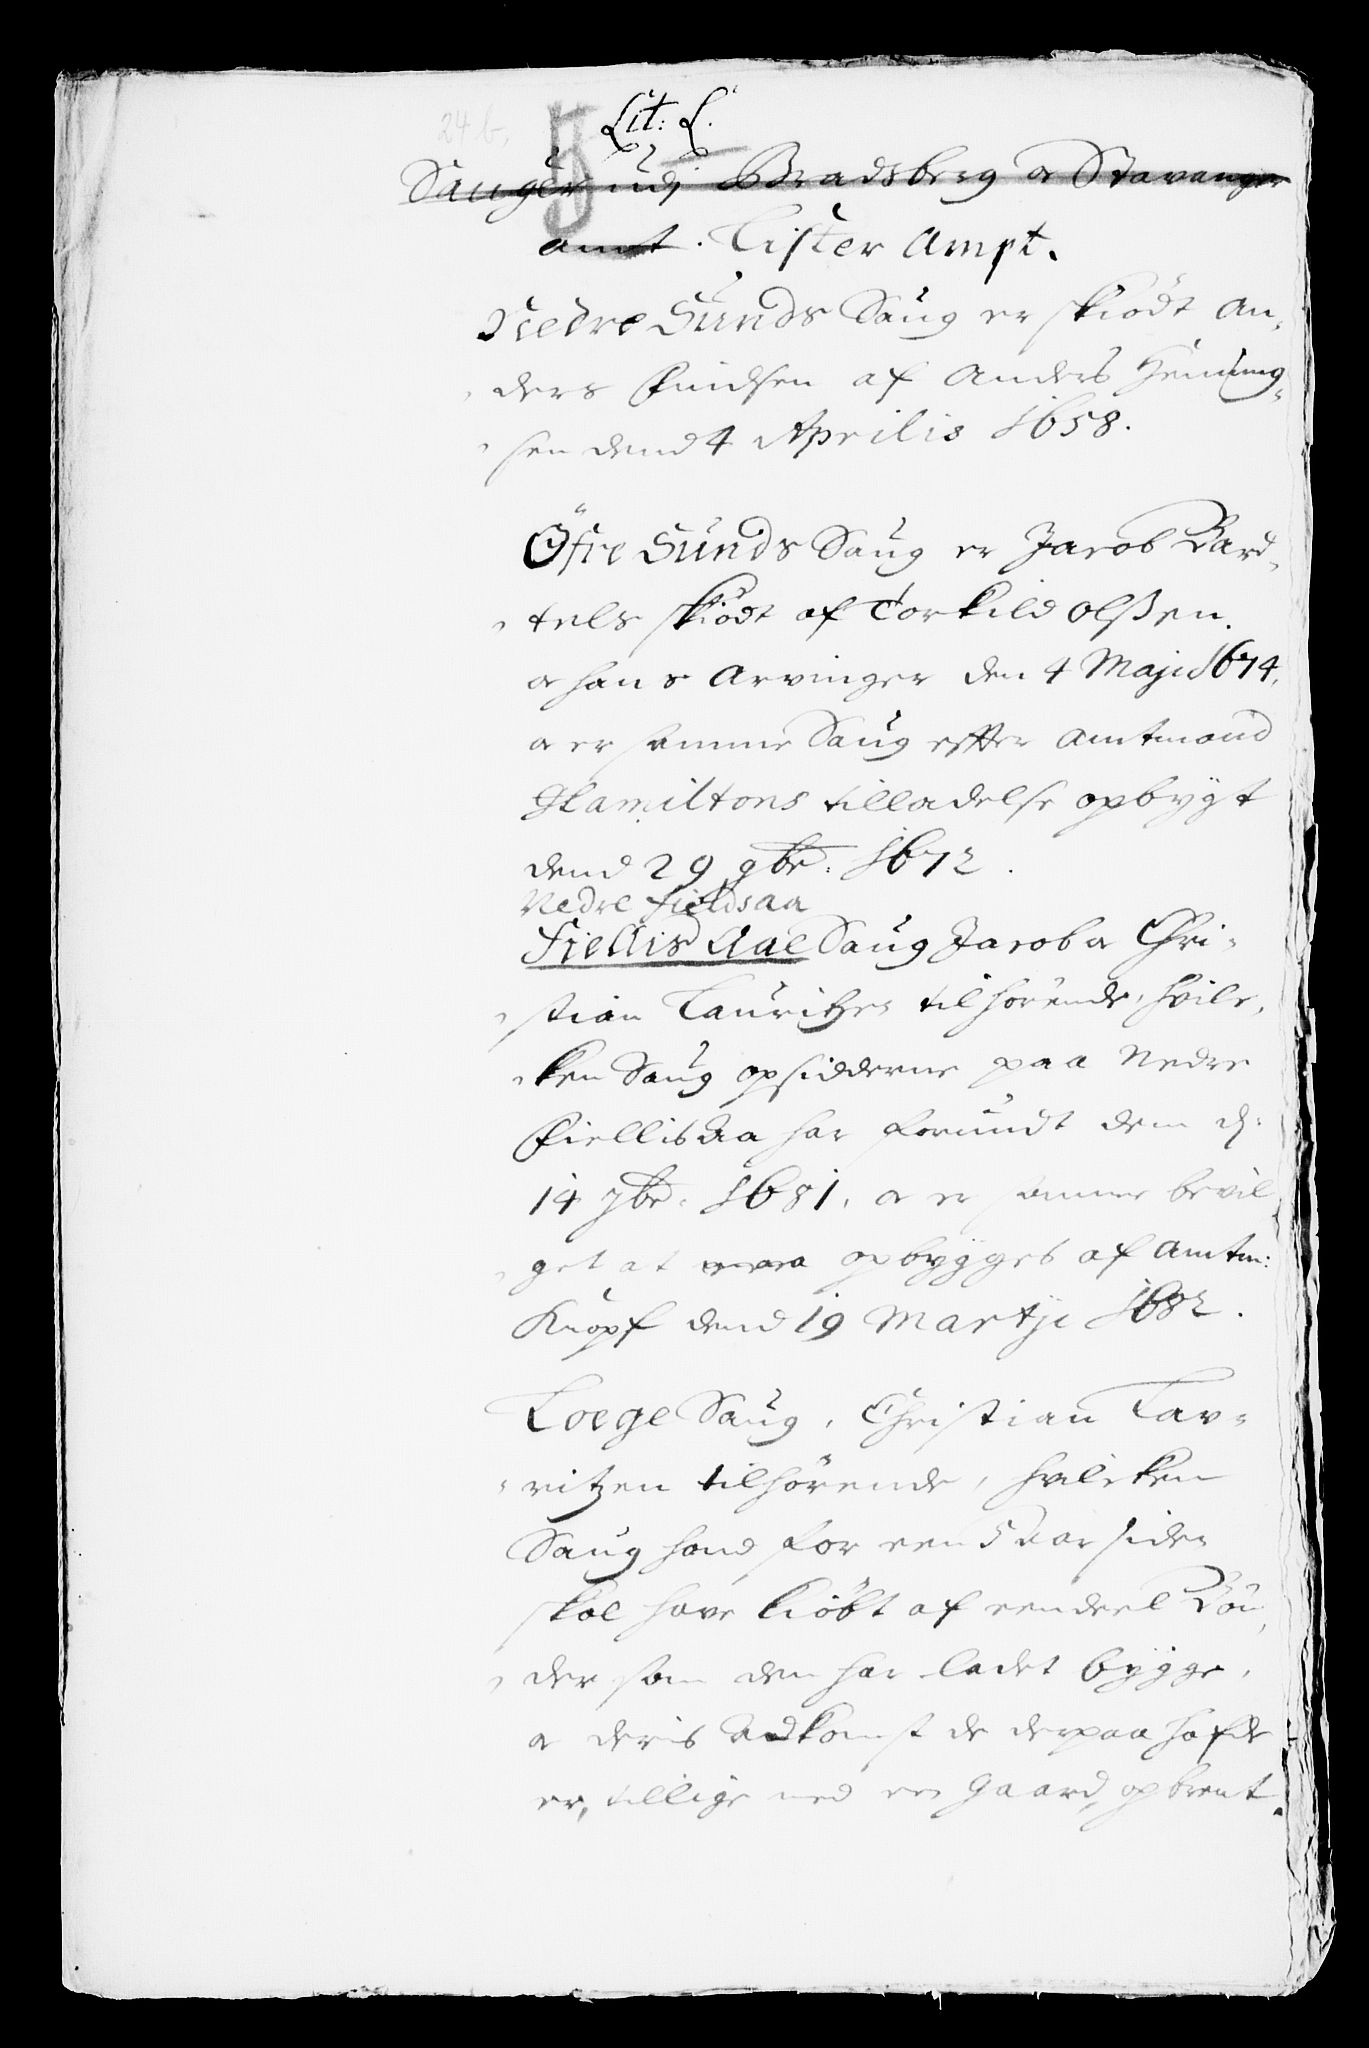 24 b.
5
Lit: L.
Sauger udj Bradsberg oc Stavanger
amt. Lister Ampt.
Nedre Sunds Saug er skiödt An,
ders Knudsen af Anders Hemming-
sen dend 4 Aprilis 1658.
Öfre Sunds Saug er Jacob Bard-
tels skiödt af Torkild Olßen.
oc hans Arvinger den 4 Maji 1674.
oc er samme Saug effter Amtmand
Hamiltons tilladelse opbygt
dend 29 9br. 1672.
Nedre Fieldsaa
Fiellis Aae Saug Jacob oc Chri-
stian Lauritzen tilhörende, hvil,
ken Saug opsidderne paa Nedre
Fiellis Aa har forundt dem d:
14 7br. 1681. oc er samme bevil
get at opbygges af Amtm:
Knopf dend 19 Martji 1682.
Loege Saug, Christian Lav-
ritzen tilhörende, hvilcken
Saug hand for een 5 Aar siden
skal have kiöbt af eendeel Bön,
der som den har ladet bygge,
oc deris Adkomst de derpaa hafde
er, tillige med een Gaard, opbrent.